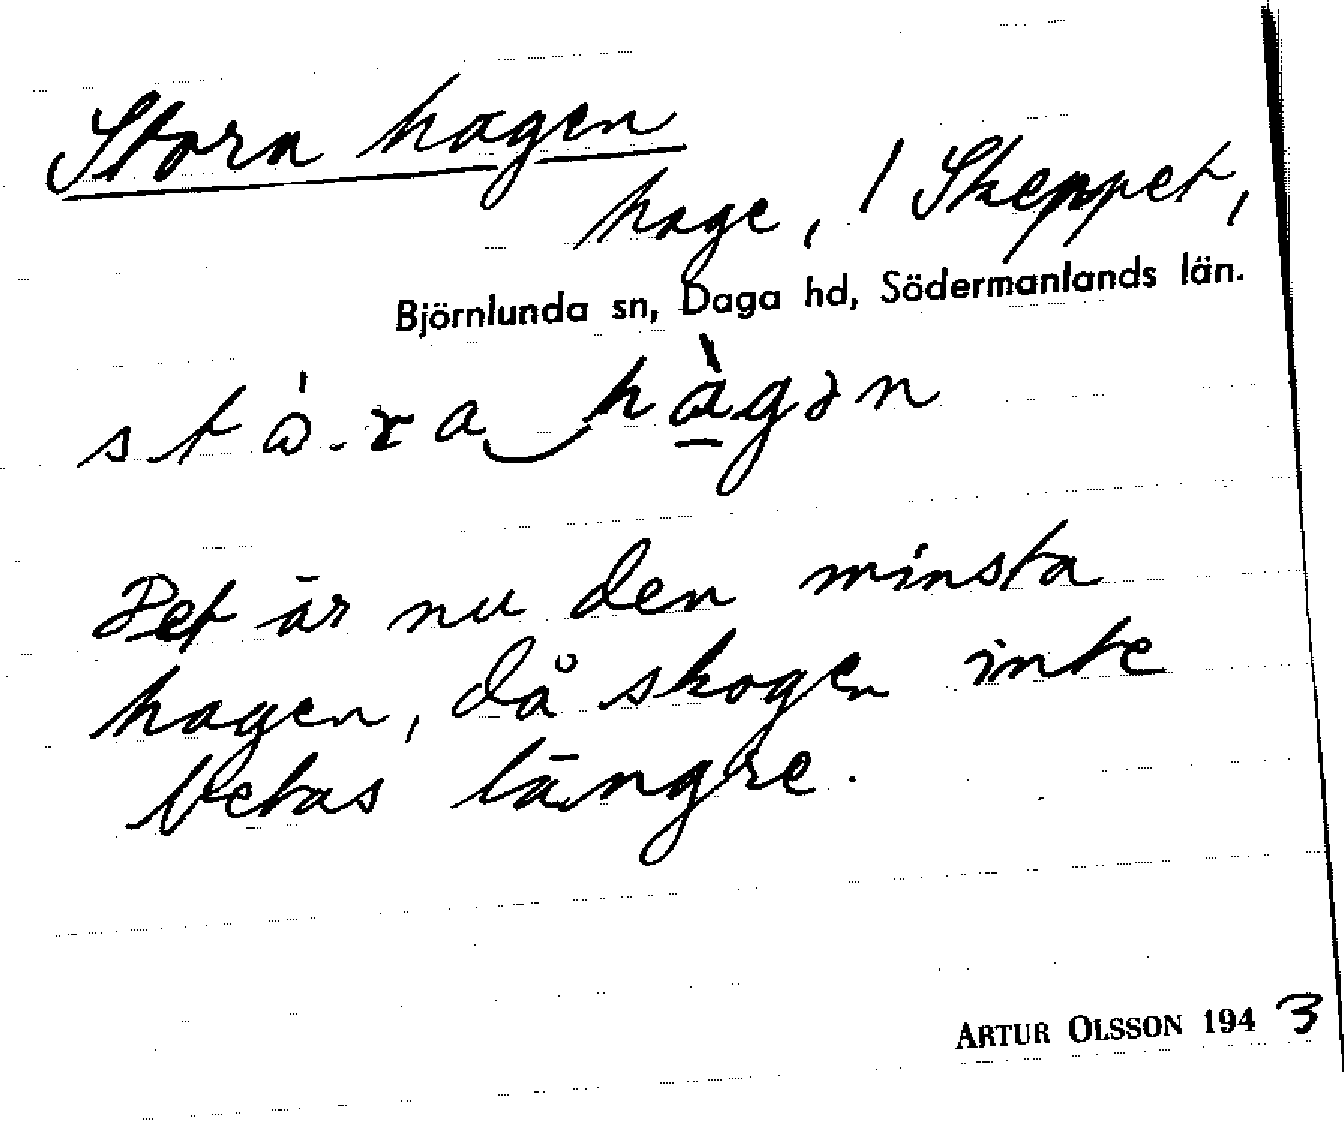 Stora hagen
hage, / Skeppet,
Björnlunda sn, Daga hd, Södermanlands län.
Det är nu den minsta
hagen, då skogen inte
betas längre.
ARTUR OLSSON 1943